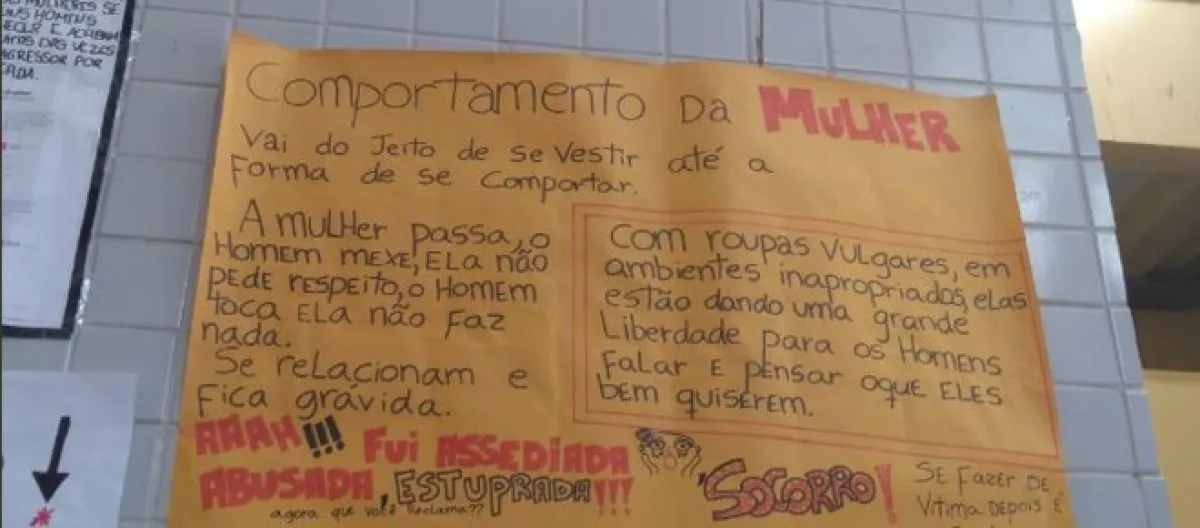 MULHERES SE
HOMENS
E ACABAM
DAS VEZES
AGRESSOR POR
Comportamento Da MULHER
Vai do Jeito de se Vestir até a
Forma de se Comportar.
A mulher passa, o
Homem mexe, Ela não
pede respeito, o Homem
toca Ela não faz
nada.
Se relacionam e
Fica grávida.
Com roupas vulgares, em
ambientes inapropriados, elas
estão dando uma grande
Liberdade para os Homens
Falar E pensar oque ELES
bem quiserem.
AAAH!!! Fui ASSEDIADA
ABUSADA, ESTUPRADA!!!
agora que você reclama??
SOCORRO!
SE FAZER DE
Vítima DEPOIS É